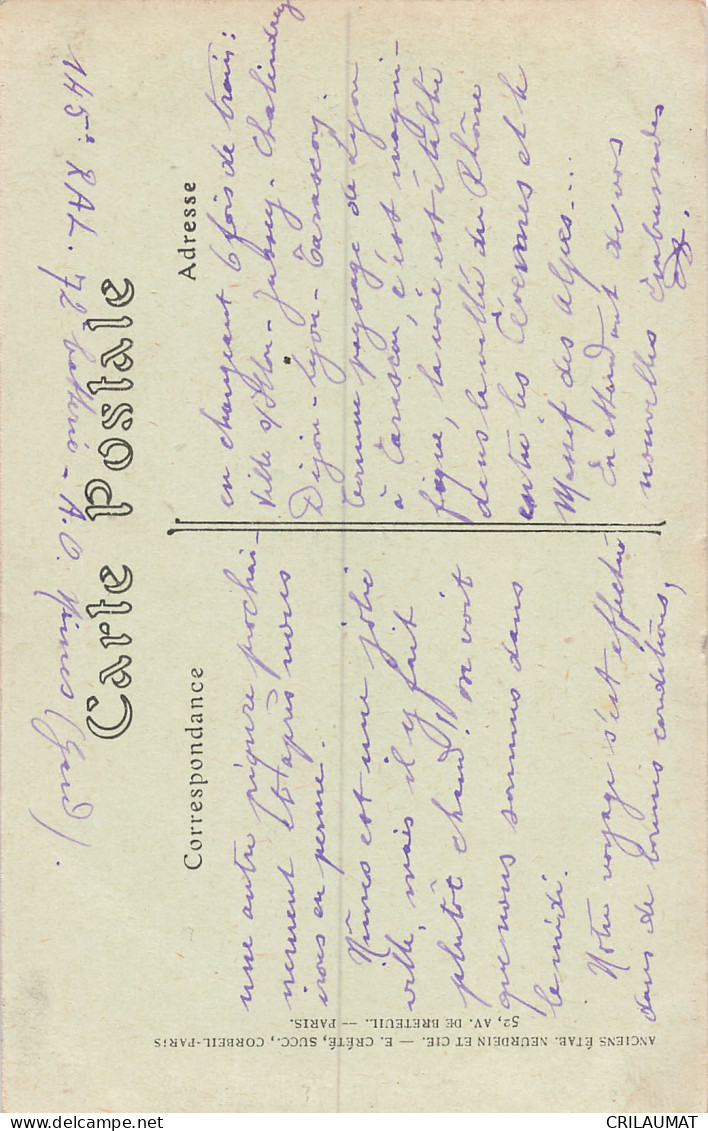 145e RAL. 72 batterie - A.O. Nimes (Gard).
Carte Postale
Correspondance
Adresse
une autre piqure prochai-
nement et après nous
irons en perme.
Nîmes est une jolie
ville, mais il y fait
plutôt chaud, on voit
que nous sommes dans
le midi.
Notre voyage s'est effectué
dans de bonnes conditions,
en changeant 6 fois de train :
Ville s/Illon - Jussey - Chalindrey
Dijon - Lyon - Tarascon.
Comme paysage de Lyon
à Tarascon, c'est magni-
fique, la voie est établie
dans la vallée du Rhône
entre les Cévennes et le
Massif des Alpes...
En attendant de vos
nouvelles
ANCIENS ÉTAB. NEURDEIN ET CIE. — E. CRÉTÉ, SUCC., CORBEIL-PARIS
52, AV. DE BRETEUIL. — PARIS.
CRILAUMAT